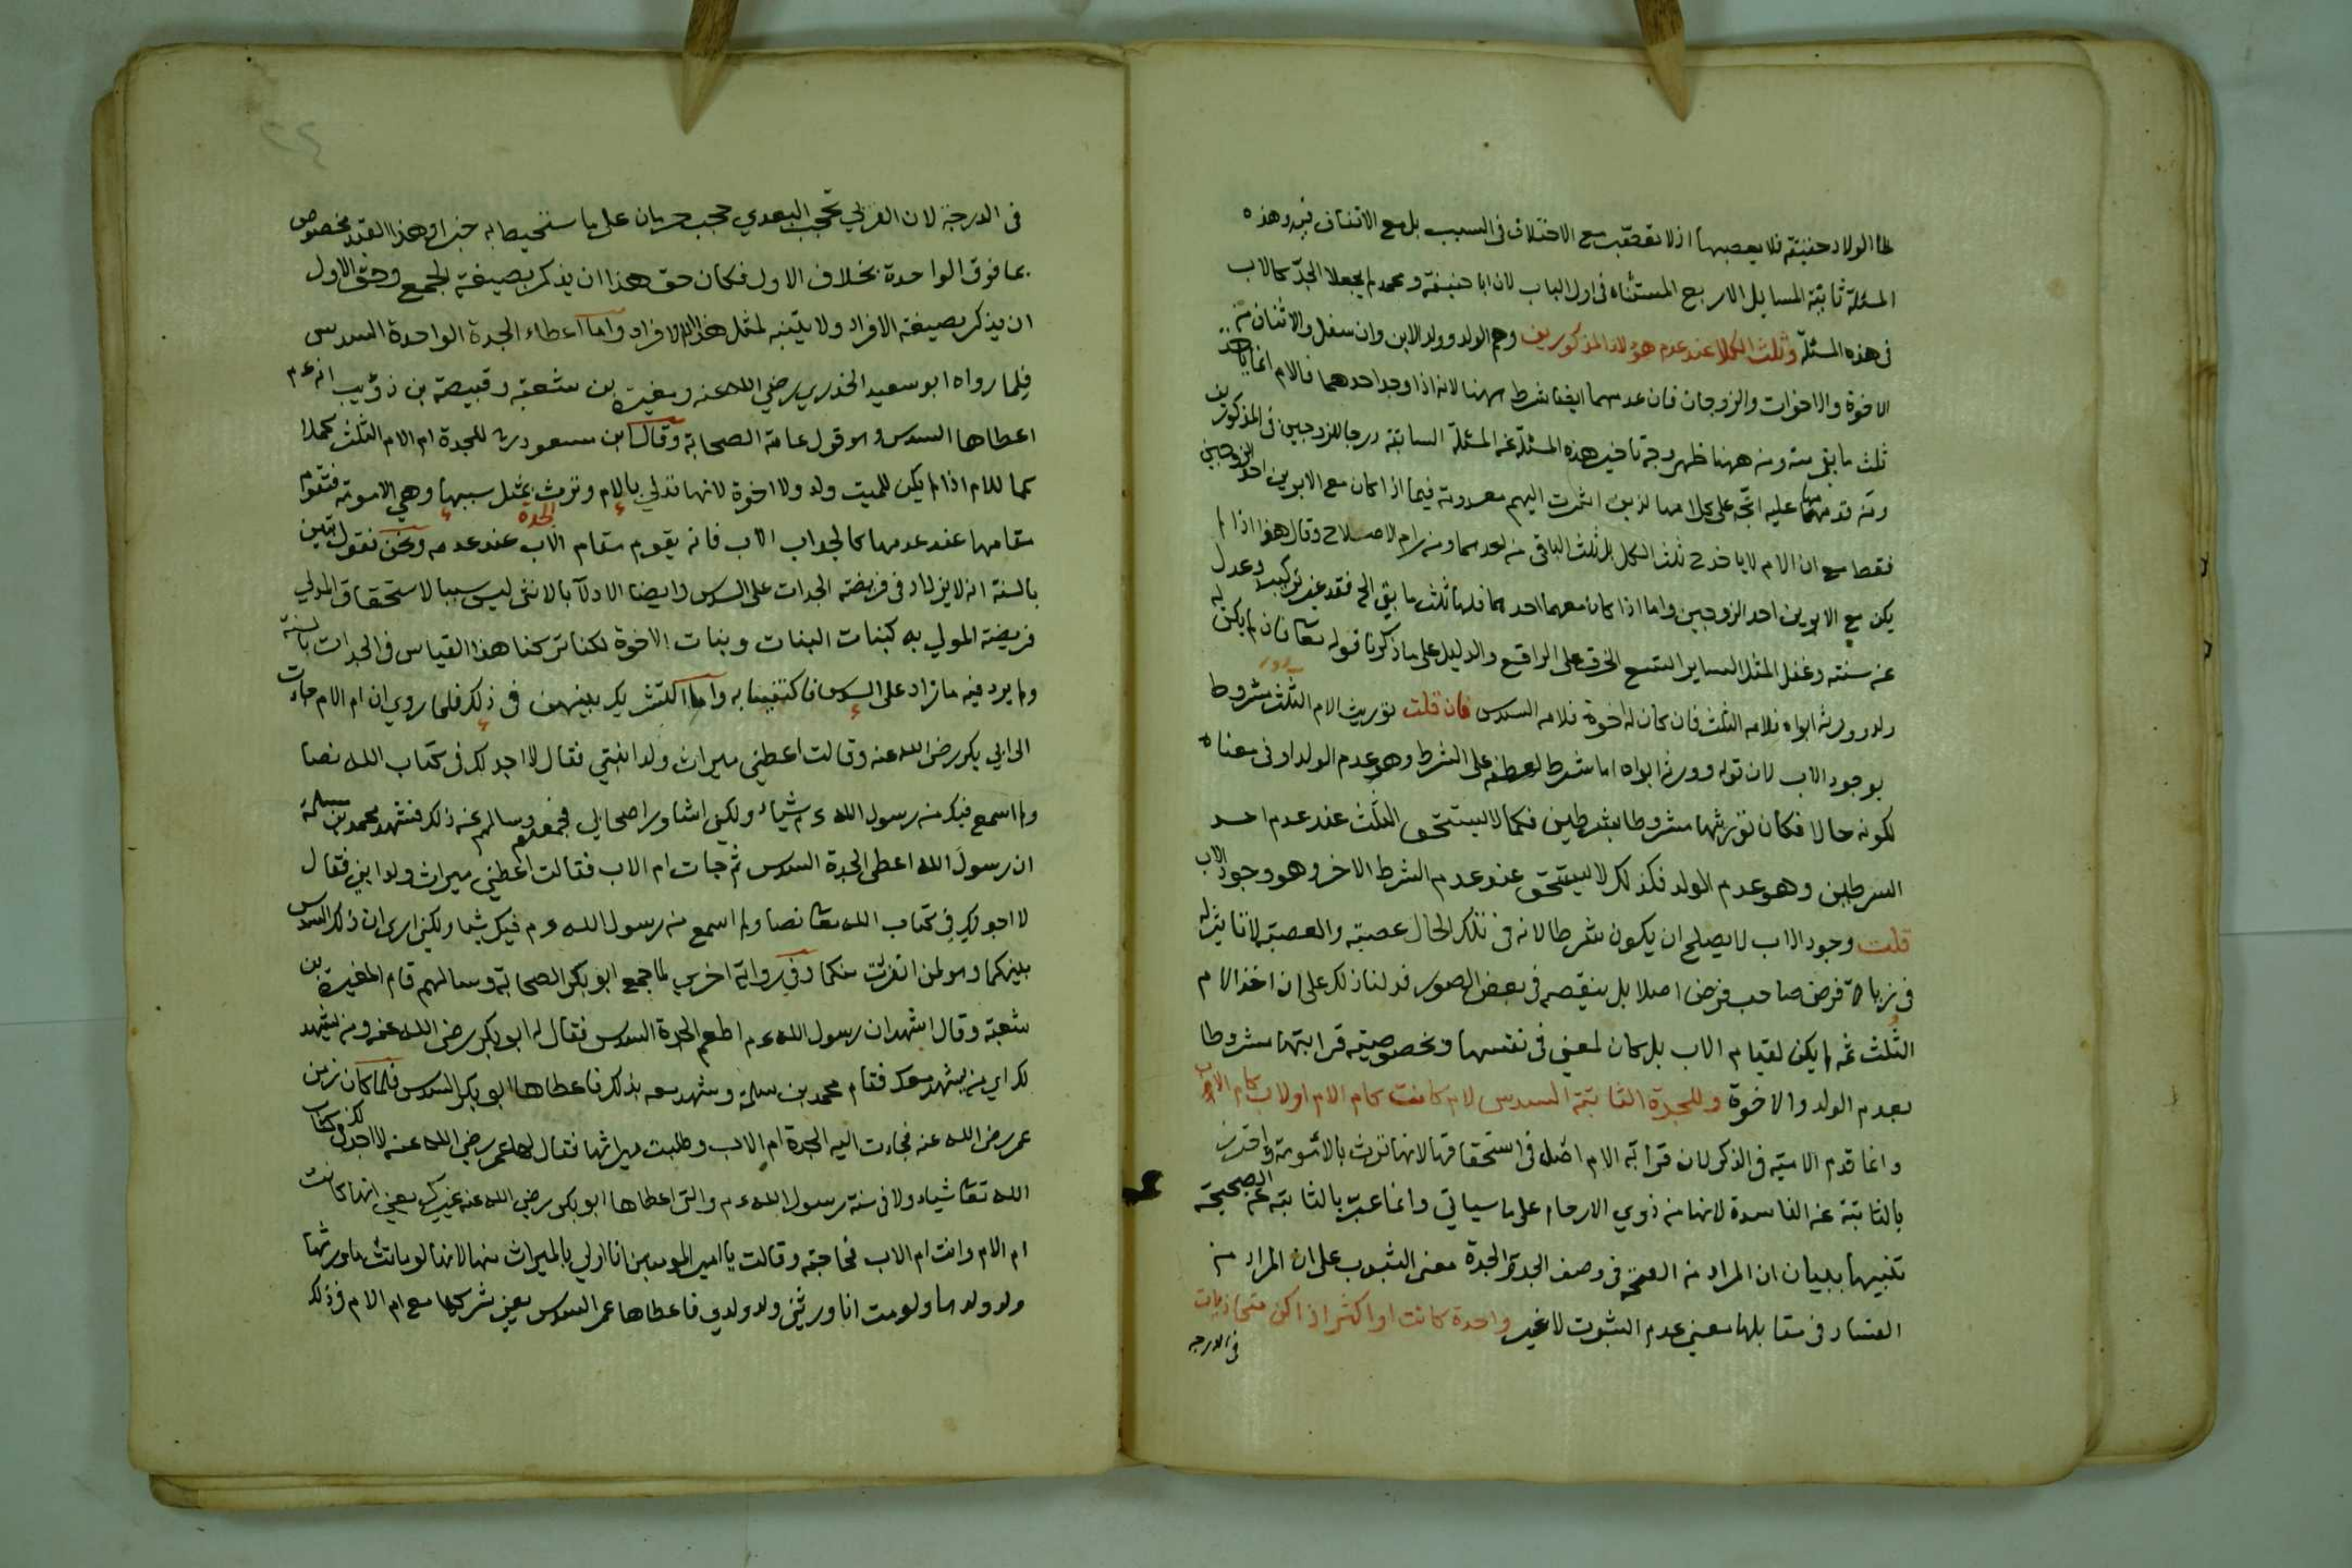 طا الولاد حقيقة فلا يعصبها اذ لا تعصب مع الاختلاف فى السبب بل مع الاتفاق فيه وهذه
المسئلة ثابتة المسايل الاربع المستثناه فى اول الباب لان ابا حنيفة ومحمد لم يجعلا الجد كالاب
فى هذه المسئلة وثلث الكل عند عدم هؤلاء المذكورين وهم الولد وولد الابن وان سفل والاثنان من
الاخوة والاخوات والزوجان فان عدمهما ايضا شرط ههنا لانه اذا وجد احدهما فالام انما تاخذ
ثلث ما بقى منه ومن ههنا ظهر وجه تاخير هذه المسئلة عن المسئلة السابقة درجا للزوجين فى المذكورين
ومن قدمها عليه اتجه على كلامه الذين اشرت اليهم معدومة فيما اذا كان مع الابوين احد الزوجين
فقط مع ان الام لا ياخذ ح ثلث الكل بل ثلث الباقى من احدهما ومن رام الاصلاح وقال هذا اذا لم
يكن مع الابوين احد الزوجين واما اذا كان معهما احدهما فلها ثلث ما بقى الخ فقد غير تركيب وعدل
عن سننه وغفل المثل الساير اتسع الخرق على الراقع والدليل على ما ذكرنا قوله تعا فان لم يكن له
ولد وورثه ابواه فلامه الثلث فان كان له اخوة فلامه السدس فان قلت توريث الام الثلث مشروط
بوجود الاب لان قوله وورثه ابواه اما شرط لعطفه على الشرط وهو عدم الولد او فى معناه
لكونه حالا فكان توريثها مشروطا بشرطين فكما لا يستحق الثلث عند عدم احد
الشرطين وهو عدم الولد فكذلك لا يستحق عند عدم الشرط الاخر وهو وجود الاب
قلت وجود الاب لا يصلح ان يكون شرطا لانه فى تلك الحال عصبة والعصبة لا تاثير له
فى زيادة فرض صاحب فرض اصلا بل ينقصه فى بعض الصور فدلنا ذلك على ان اخذ الام
الثلث ثمه لم يكن لقيام الاب بل كان لمعنى فى نفسها وخصوصية قرابتها مشروطا
بعدم الولد والاخوة وللجدة الثابتة السدس لام كانت كام الام او لاب كام الاب
وانما قدم الامية فى الذكر لان قرابة الام اصل فى استحقاقها لانها ترث بالامومة واحترز
بالثابتة عن الفاسدة لانها من ذوي الارحام على ما سياتي وانما عبر بالثابتة عن الصحيحة
تنبيها ببيان ان المراد من الصحة فى وصف الجد والجدة معنى الثبوت على ان المراد من
الفساد فى مقابلها معنى عدم الثبوت لا غير واحدة كانت او اكثر اذا كن متحاذيات
فى الدرجة
فى الدرجة لان القربي تحجب البعدي حجب حرمان على ما ستحيط به خبرا وهذا القيد مخصوص
بما فوق الواحدة بخلاف الاول فكان حق هذا ان يذكر بصيغة الجمع وحق الاول
ان يذكر بصيغة الافراد ولا يتنبه لمثل هذا الا الافراد واما اعطاء الجدة الواحدة السدس
فلما رواه ابو سعيد الخدري رضي الله عنه ومغيرة بن شعبة وقبيصة بن ذؤيب انه ءم
اعطاها السدس وهو قول عامة الصحابة وقال ابن مسعود رض للجدة ام الام الثلث كملا
كما للام اذا لم يكن للميت ولد ولا اخوة لانها تدلي بالام وترث بمثل سببها وهي الامومة فتقوم
الجدة
مقامها عند عدمها كالجد اب الاب فانه يقوم مقام الاب عند عدمه ونحن نقول تبين
بالسنة انه لا يزاد فى فريضة الجدات على السدس وايضا الادلآ بالانثى ليس سببا لاستحقاق المدلي
فريضة المدلي به كبنات البنات وبنات الاخوة لكنا تركنا هذا القياس فى الجدات بالسنة
ولم يرد فيه ما زاد على السدس فاكتفينا به واما التشريك بينهن فى ذلك فلما روي ان ام الام جاءت
الى ابي بكر رضى الله عنه وقالت اعطني ميراث ولد ابنتي فقال لا اجد لك فى كتاب الله نصا
ولم اسمع فيك من رسول الله ءم شيا ولكنى اشاور اصحابي فجمعهم وسالهم عن ذلك فشهد محمد بن سلمة
ان رسول الله اعطى الجدة السدس ثم جات ام الاب فقالت اعطني ميراث ولد ابني فقال
لا اجد لك فى كتاب الله تعا نصا ولم اسمع من رسول الله ءم فيك شيا ولكني ارى ان ذلك السدس
بينكما وهو لمن انفردت منكما وفي رواية اخري لما جمع ابو بكر الصحابة وسالهم قام المغيرة بن
شعبة وقال اشهد ان رسول الله ءم اطعم الجدة السدس فقال له ابو بكر رضى الله عنه ومن يشهد
لك اي من يشهد معك فقام محمد بن سلمة وشهد معه بذلك فاعطاها ابو بكر السدس فلما كان زمن
عمر رضى الله عنه فجاءت اليه الجدة ام الاب وطلبت ميراثها فقال لها عمر رضي الله عنه لا اجد لك فى كتاب
الله تعا شيا ولا فى سنة رسول الله ءم والتى اعطاها ابو بكر رضي الله عنه غيرك يعني انها كانت
ام الام وانت ام الاب فحاجته وقالت يا امير المومنين انا اولي بالميراث منها لانها لو ماتت ما ورثها
ولد ولدها ولو مت انا ورثنى ولد ولدي فاعطاها عمر السدس يعني شركها مع ام الام فى ذلك